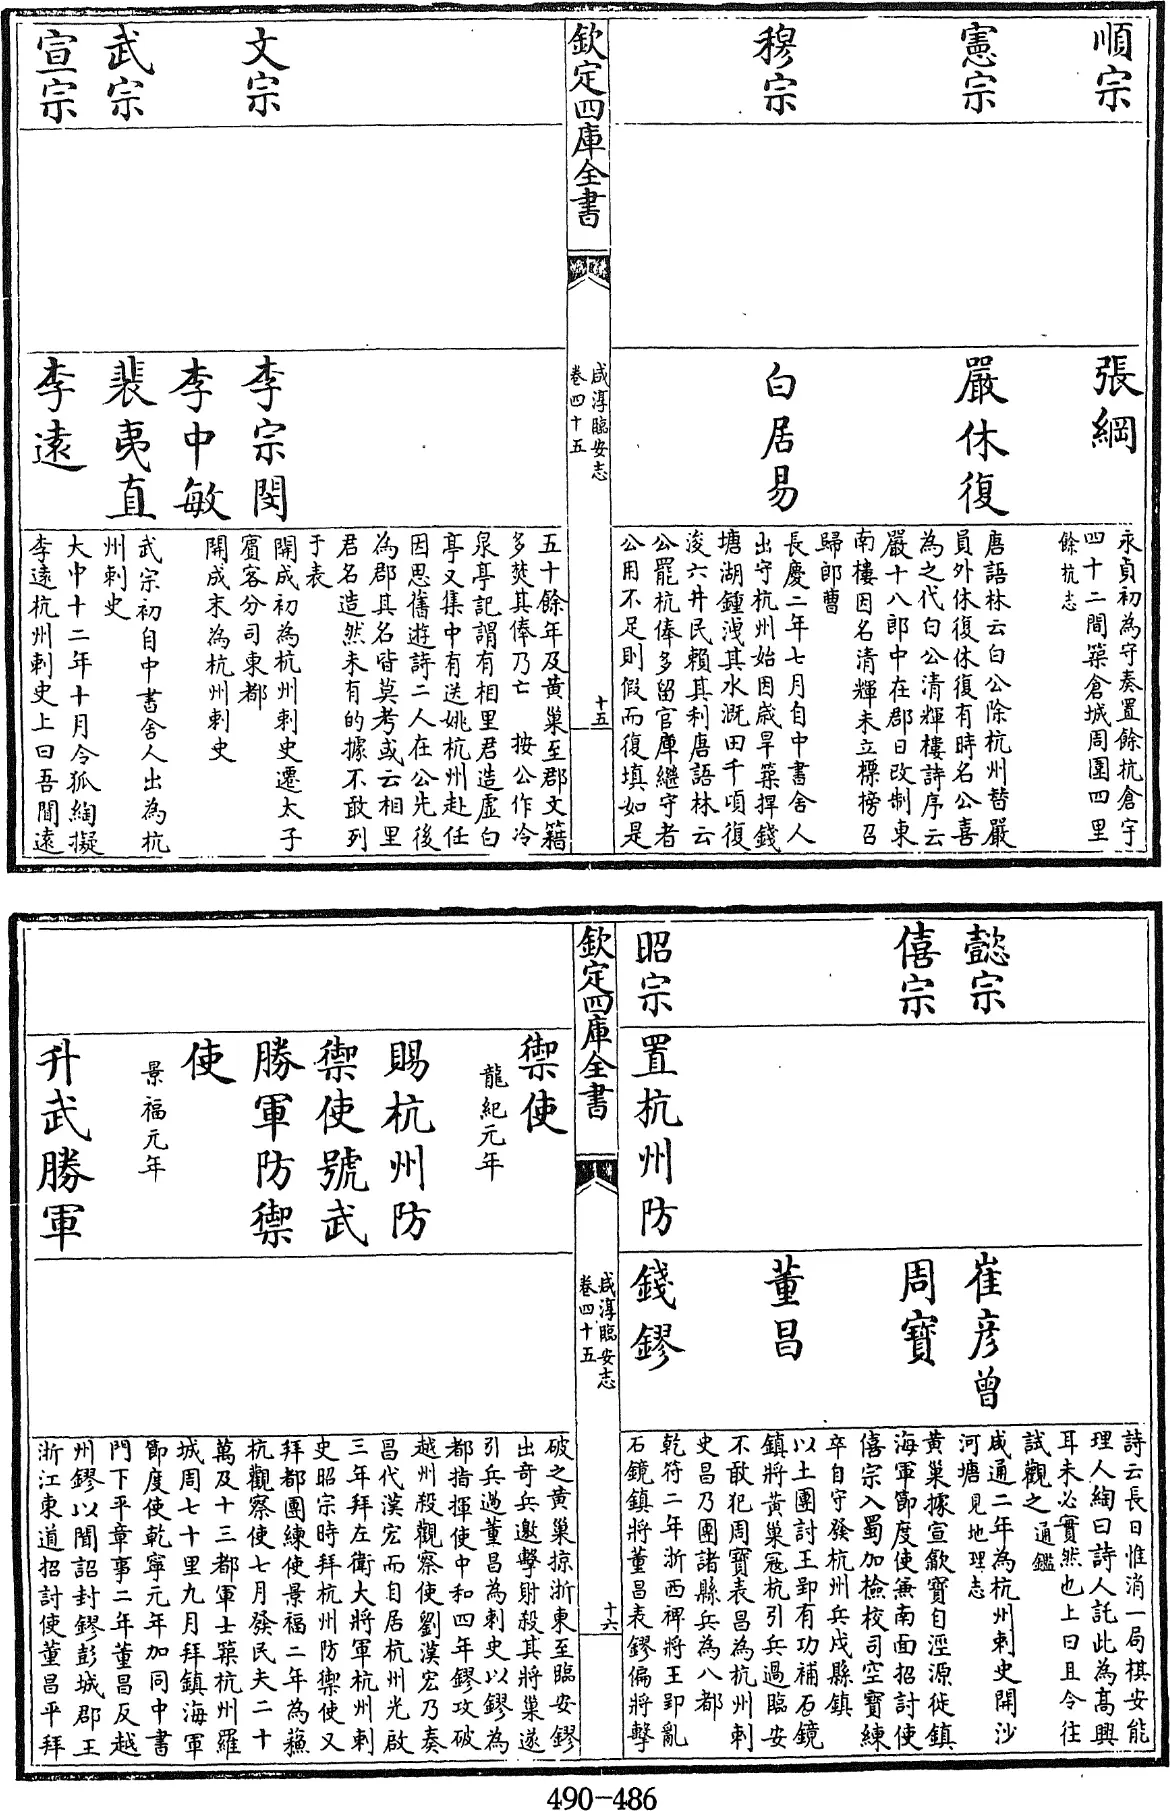 順宗
張綱
永貞初為守奏置餘杭倉宇
四十二間築倉城周圍四里
餘杭志
憲宗
嚴休復
唐語林云白公除杭州替嚴
員外休復休復有時名公喜
為之代白公清輝樓詩序云
嚴十八郎中在郡日改制東
南樓因名清輝未立標榜召
歸郎曹
穆宗
白居易
長慶二年七月自中書舍人
出守杭州始因歲旱築捍錢
塘湖鍾洩其水溉田千頃復
浚六井民賴其利唐語林云
公罷杭俸多留官庫繼守者
公用不足則假而復填如是
欽定四庫全書
咸淳臨安志
卷四十五
十五
五十餘年及黃巢至郡文籍
多焚其俸乃亡 按公作冷
泉亭記謂有相里君造虛白
亭又集中有送姚杭州赴任
因思舊遊詩二人在公先後
為郡其名皆莫考或云相里
君名造然未有的據不敢列
于表
文宗
李宗閔
開成初為杭州刺史遷太子
賓客分司東都
李中敏
開成末為杭州刺史
武宗
裴夷直
武宗初自中書舍人出為杭
州刺史
宣宗
李遠
大中十二年十月令狐綯擬
李遠杭州刺史上曰吾聞遠
詩云長日惟消一局棋安能
理人綯曰詩人託此為高興
耳未必實然也上曰且令往
試觀之通鑑
懿宗
崔彦曾
咸通二年為杭州刺史開沙
河塘見地理志
僖宗
周寶
黃巢據宣歙寶自涇源徙鎮
海軍節度使兼南面招討使
僖宗入蜀加檢校司空寶練
卒自守發杭州兵戍縣鎮
董昌
以土團討王郢有功補石鏡
鎮將黃巢宼杭引兵過臨安
不敢犯周寶表昌為杭州刺
史昌乃團諸縣兵為八都
昭宗
置杭州防
錢鏐
乾符二年浙西裨將王郢亂
石鏡鎮將董昌表鏐偏將擊
欽定四庫全書
咸淳臨安志
卷四十五
十六
禦使
龍紀元年
賜杭州防
禦使號武
勝軍防禦
使
景福元年
升武勝軍
破之黃巢掠浙東至臨安鏐
出奇兵邀擊射殺其將巢遂
引兵過董昌為刺史以鏐為
都指揮使中和四年鏐攻破
越州殺觀察使劉漢宏乃奏
昌代漢宏而自居杭州光啟
三年拜左衛大將軍杭州刺
史昭宗時拜杭州防禦使又
拜都團練使景福二年為蘇
杭觀察使七月發民夫二十
萬及十三都軍士築杭州羅
城周七十里九月拜鎮海軍
節度使乾寧元年加同中書
門下平章事二年董昌反越
州鏐以聞詔封鏐彭城郡王
浙江東道招討使董昌平拜
490-486